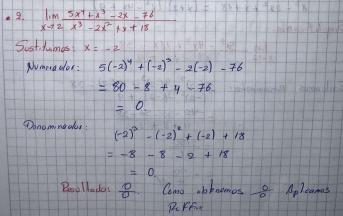 2. lim 5x⁴ + x³ - 2x - 76
x→2 x³ - 2x² + x + 18
Sustituimos: x = -2
Numerador: 5(-2)⁴ + (-2)³ - 2(-2) - 76
= 80 - 8 + 4 - 76
= 0
Denominador:
(-2)³ - (-2)² + (-2) + 18
= -8 - 8 - 2 + 18
= 0.
Resultados 0/0. Como obtenemos 0/0 Aplicamos